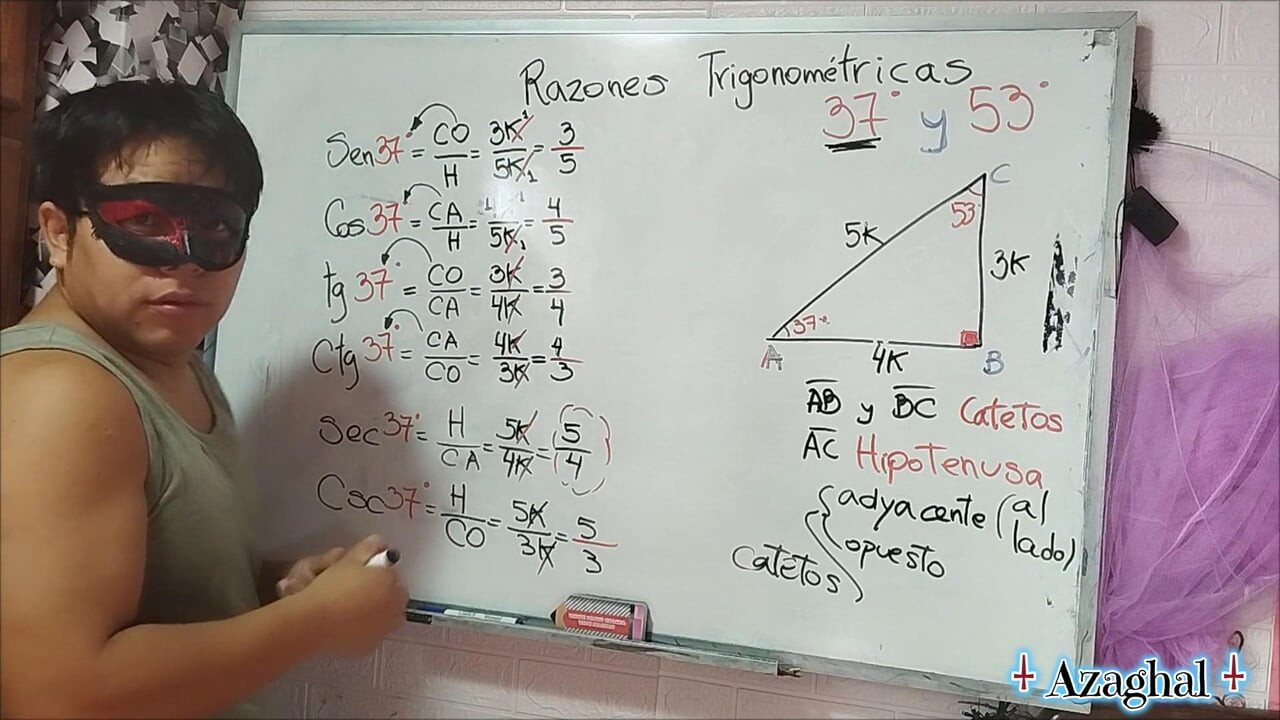 Razones Trigonométricas
37° y 53°
Sen37° = CO/H = 3K/5K = 3/5
Cos 37° = CA/H = /5K = 4/5
tg 37° = CO/CA = 3K/4K = 3/4
Ctg 37° = CA/CO = 4K/3K = 4/3
Sec 37° = H/CA = 5K/4K = (5/4)
Csc 37° = H/CO = 5K/3K = 5/3
C
53
5K
3K
37°
A
4K
B
AB y BC Catetos
AC Hipotenusa
Catetos { adyacente (al lado)
opuesto
Azaghal